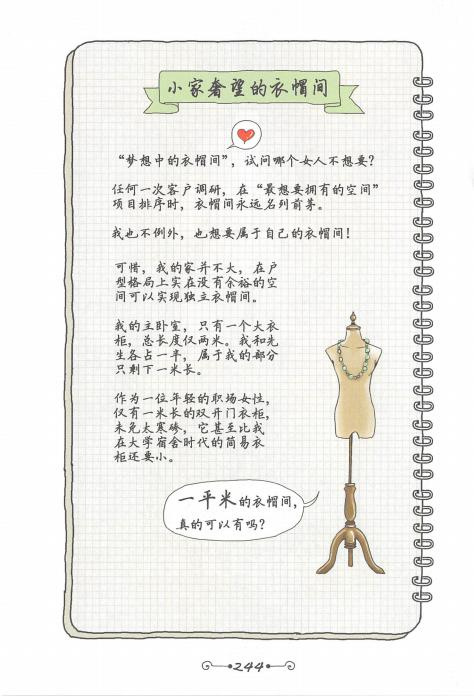 小家奢望的衣帽间
“梦想中的衣帽间”，试问哪个女人不想要？
任何一次客户调研，在“最想要拥有的空间”
项目排序时，衣帽间永远名列前茅。
我也不例外，也想要属于自己的衣帽间！
可惜，我的家并不大，在户
型格局上实在没有余裕的空
间可以实现独立衣帽间。
我的主卧室，只有一个大衣
柜，总长度仅两米。我和先
生各占一半，属于我的部分
只剩下一米长。
作为一位年轻的职场女性，
仅有一米长的双开门衣柜，
未免太寒碜，它甚至比我
在大学宿舍时代的简易衣
柜还要小。
一平米的衣帽间，
真的可以有吗？
244